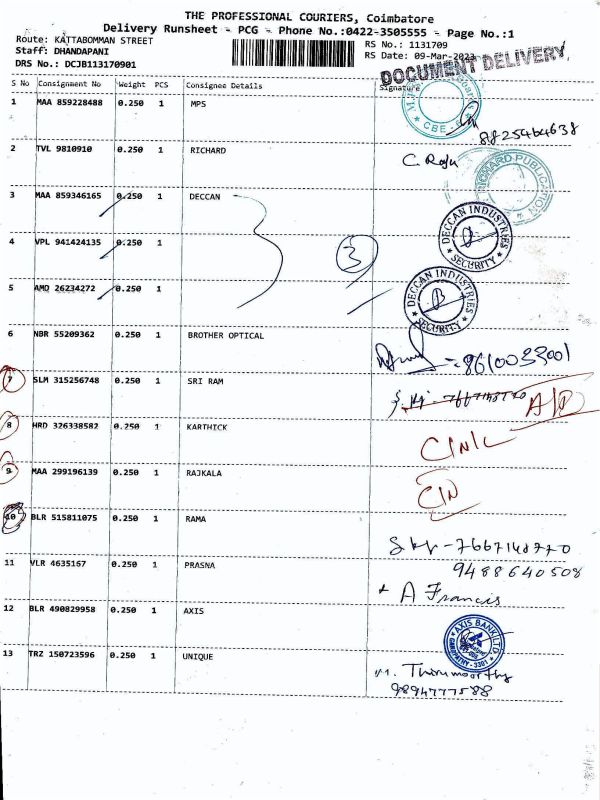 THE PROFESSIONAL COURIERS, Coimbatore
Delivery Runsheet - PCG - Phone No.:0422-3505555 - Page No.:1
Route: KATTABOMMAN STREET
Staff: DHANDAPANI
DRS No.: DCJB113170901
RS No.: 1131709
RS Date: 09-Mar-2023
DOCUMENT DELIVERY
S No Consignment No Weight PCS Consignee Details Signature
1 MAA 859228488 0.250 1 MPS
CBE
8825464638
2 TVL 9810910 0.250 1 RICHARD
C. Raju
3 MAA 859346165 0.250 1 DECCAN
DECCAN INDUSTRIES
SECURITY
4 VPL 941424135 0.250 1
3
5 AMD 26234272 0.250 1
DECCAN INDUSTRIES
SECURITY
6 NBR 55209362 0.250 1 BROTHER OPTICAL
8610033001
7 SLM 315256748 0.250 1 SRI RAM
8 HRD 326338582 0.250 1 KARTHICK
9 MAA 299196139 0.250 1 RAJKALA
10 BLR 515811075 0.250 1 RAMA
7667148770
11 VLR 4635167 0.250 1 PRASNA
9488640508
A Francis
12 BLR 490829958 0.250 1 AXIS
AXIS BANK LTD
13 TRZ 150723596 0.250 1 UNIQUE
M. Thirumoorthy
9894777588